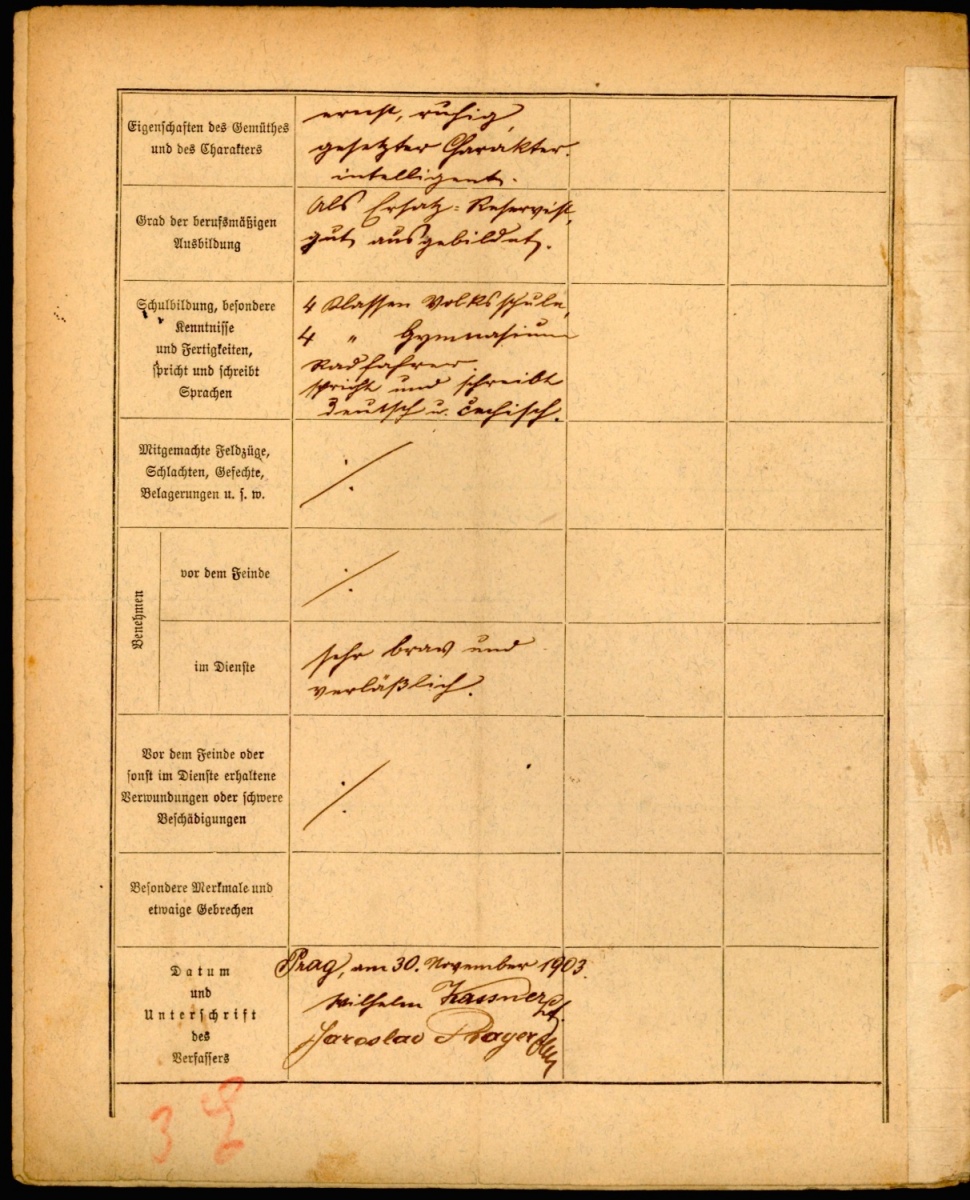 Eigenschaften des Gemüthes
und des Charakters
ernst, ruhig,
gesetzter Charakter.
intelligent.
Grad der berufsmäßigen
Ausbildung
Als Ersatz-Reservist,
gut ausgebildet.
Schulbildung, besondere
Kenntnisse
und Fertigkeiten,
spricht und schreibt
Sprachen
4 Klassen Volksschule,
4 " Gymnasium
Radfahrer
spricht und schreibt
deutsch u. čechisch.
Mitgemachte Feldzüge,
Schlachten, Gefechte,
Belagerungen u. s. w.
Benehmen
vor dem Feinde
im Dienste
sehr brav und
verläßlich.
Vor dem Feinde oder
sonst im Dienste erhaltene
Verwundungen oder schwere
Beschädigungen
Besondere Merkmale und
etwaige Gebrechen
Datum
und
Unterschrift
des
Verfassers
Prag, am 30. November 1903.
Wilhelm Kassner
Jaroslav Prayer
3